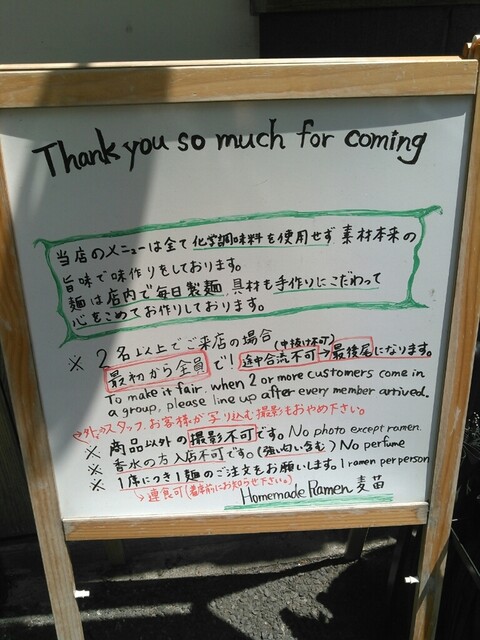 Thank you so much for coming
当店のメニューは全て化学調味料を使用せず 素材本来の
旨味で味作りをしております。
麺は店内で毎日製麺 具材も手作りにこだわって
心をこめてお作りしております。
※ 2名以上でご来店の場合(中抜け不可)
最初から全員で! 途中合流不可→最後尾になります。
To make it fair, when 2 or more customers come in
a group, please line up after every member arrived.
スタッフ、お客様が写り込む撮影もおやめ下さい。
※ 商品以外の撮影不可です。 No photo except ramen.
※ 香水の方入店不可です。(強い匂い含む) No perfume
※ 1席につき1麺のご注文をお願いします。 1 ramen per person
→連食可(着席前にお知らせ下さい。)
Homemade Ramen 麦苗